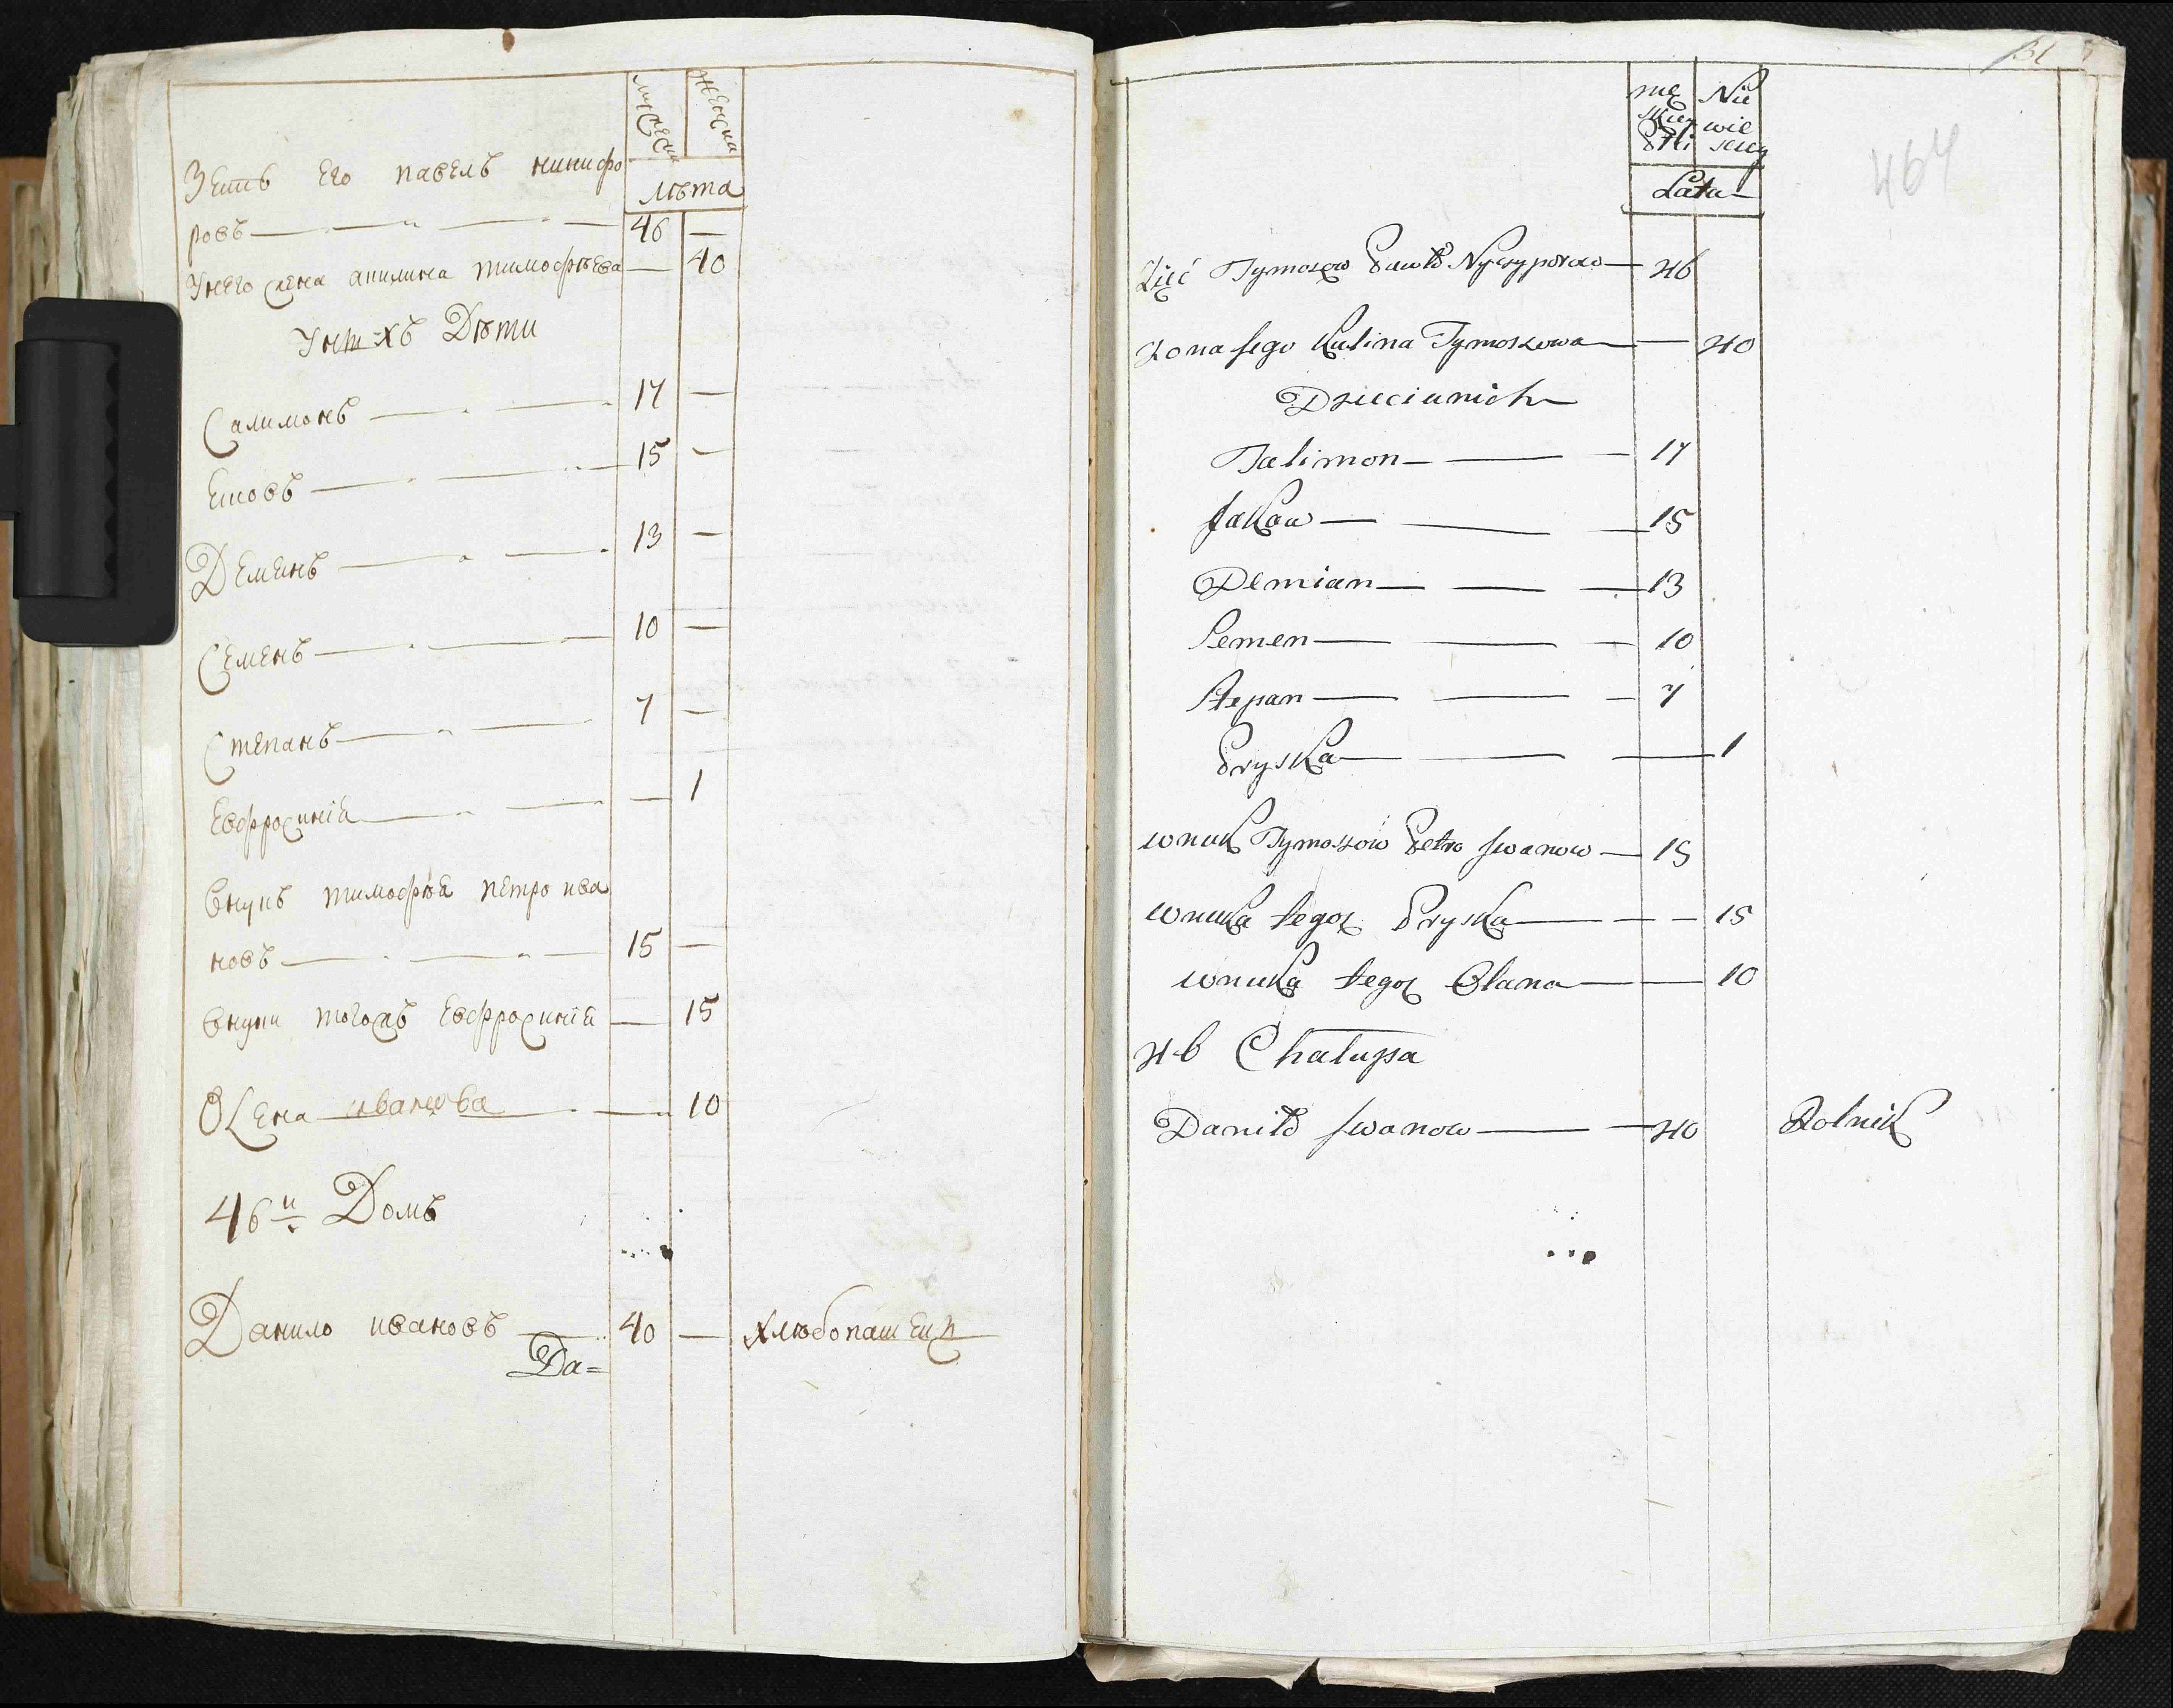 мужеска
женска
лѣта
Зеть его павелъ никифо
ровъ 46 —
У него жена акилина тимофѣева — 40
У нихъ Дѣти
Салимонъ 17 —
Ековъ 15 —
Деменъ 13 —
Семенъ 10 —
Степанъ 7 —
Евфросинїя — 1
Внукъ тимофѣя петро ива
новъ 15 —
Внуки тогожъ Евфросинїя — 15
Олена иванова — 10
46й Домъ
Данило ивановъ 40 — хлѣбопашец
Да=
464
Lata
Zięć Tymoszow Pawło Nyczyporow 46
Zona jego Kulina Tymoszowa — 40
Dzieci u nich
Talimon 17
Jakow 15
Demian 13
Semen 10
Stepan 7
Pryska — 1
wnuk Tymoszow Petro Jwanow 15
wnuka tegoz Pryska — 15
wnuka tegoz Olana — 10
46 Chałupa
Daniło Jwanow 40 Rolnik